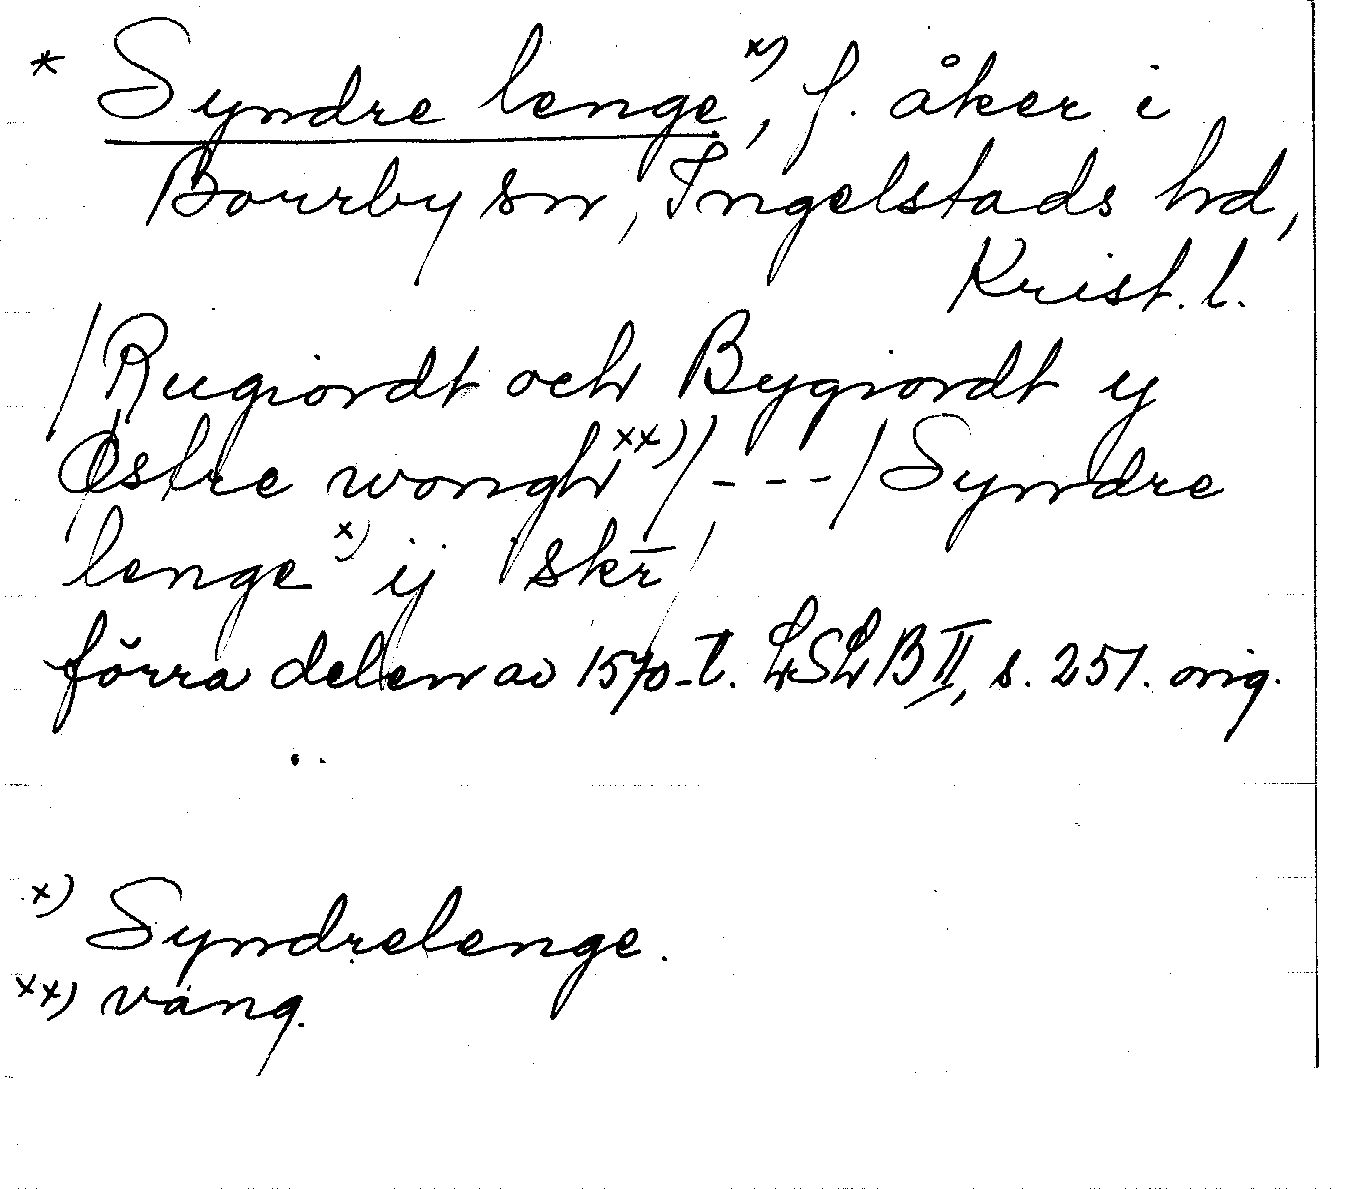 * Syndre lenge x), f. åker i
Borrby sn, Ingelstads hd,
Krist. l.
/Rugiordt och Bygiordt ij
Østre wongh xx)/ - - - /Syndre
lenge x) ij skr̄/
förra delen av 1570-t. LSLB II, s. 251. orig.
x) Syndrelenge.
xx) vång.